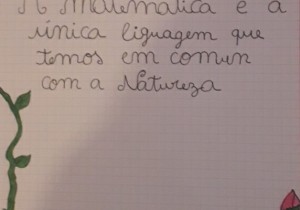 A Matemática é a
única liguagem que
temos em comun
com a Natureza